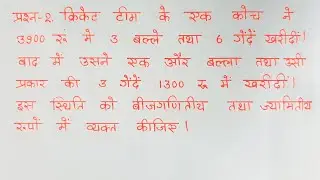 प्रश्न-2. क्रिकेट टीम के एक कोच ने
3900 रू में 3 बल्ले तथा 6 गेंदें खरीदीं।
बाद में उसने एक और बल्ला तथा उसी
प्रकार की 3 गेंदें 1300 रू में खरीदीं।
इस स्थिति को बीजगणितीय तथा ज्यामितीय
रूपों में व्यक्त कीजिए।